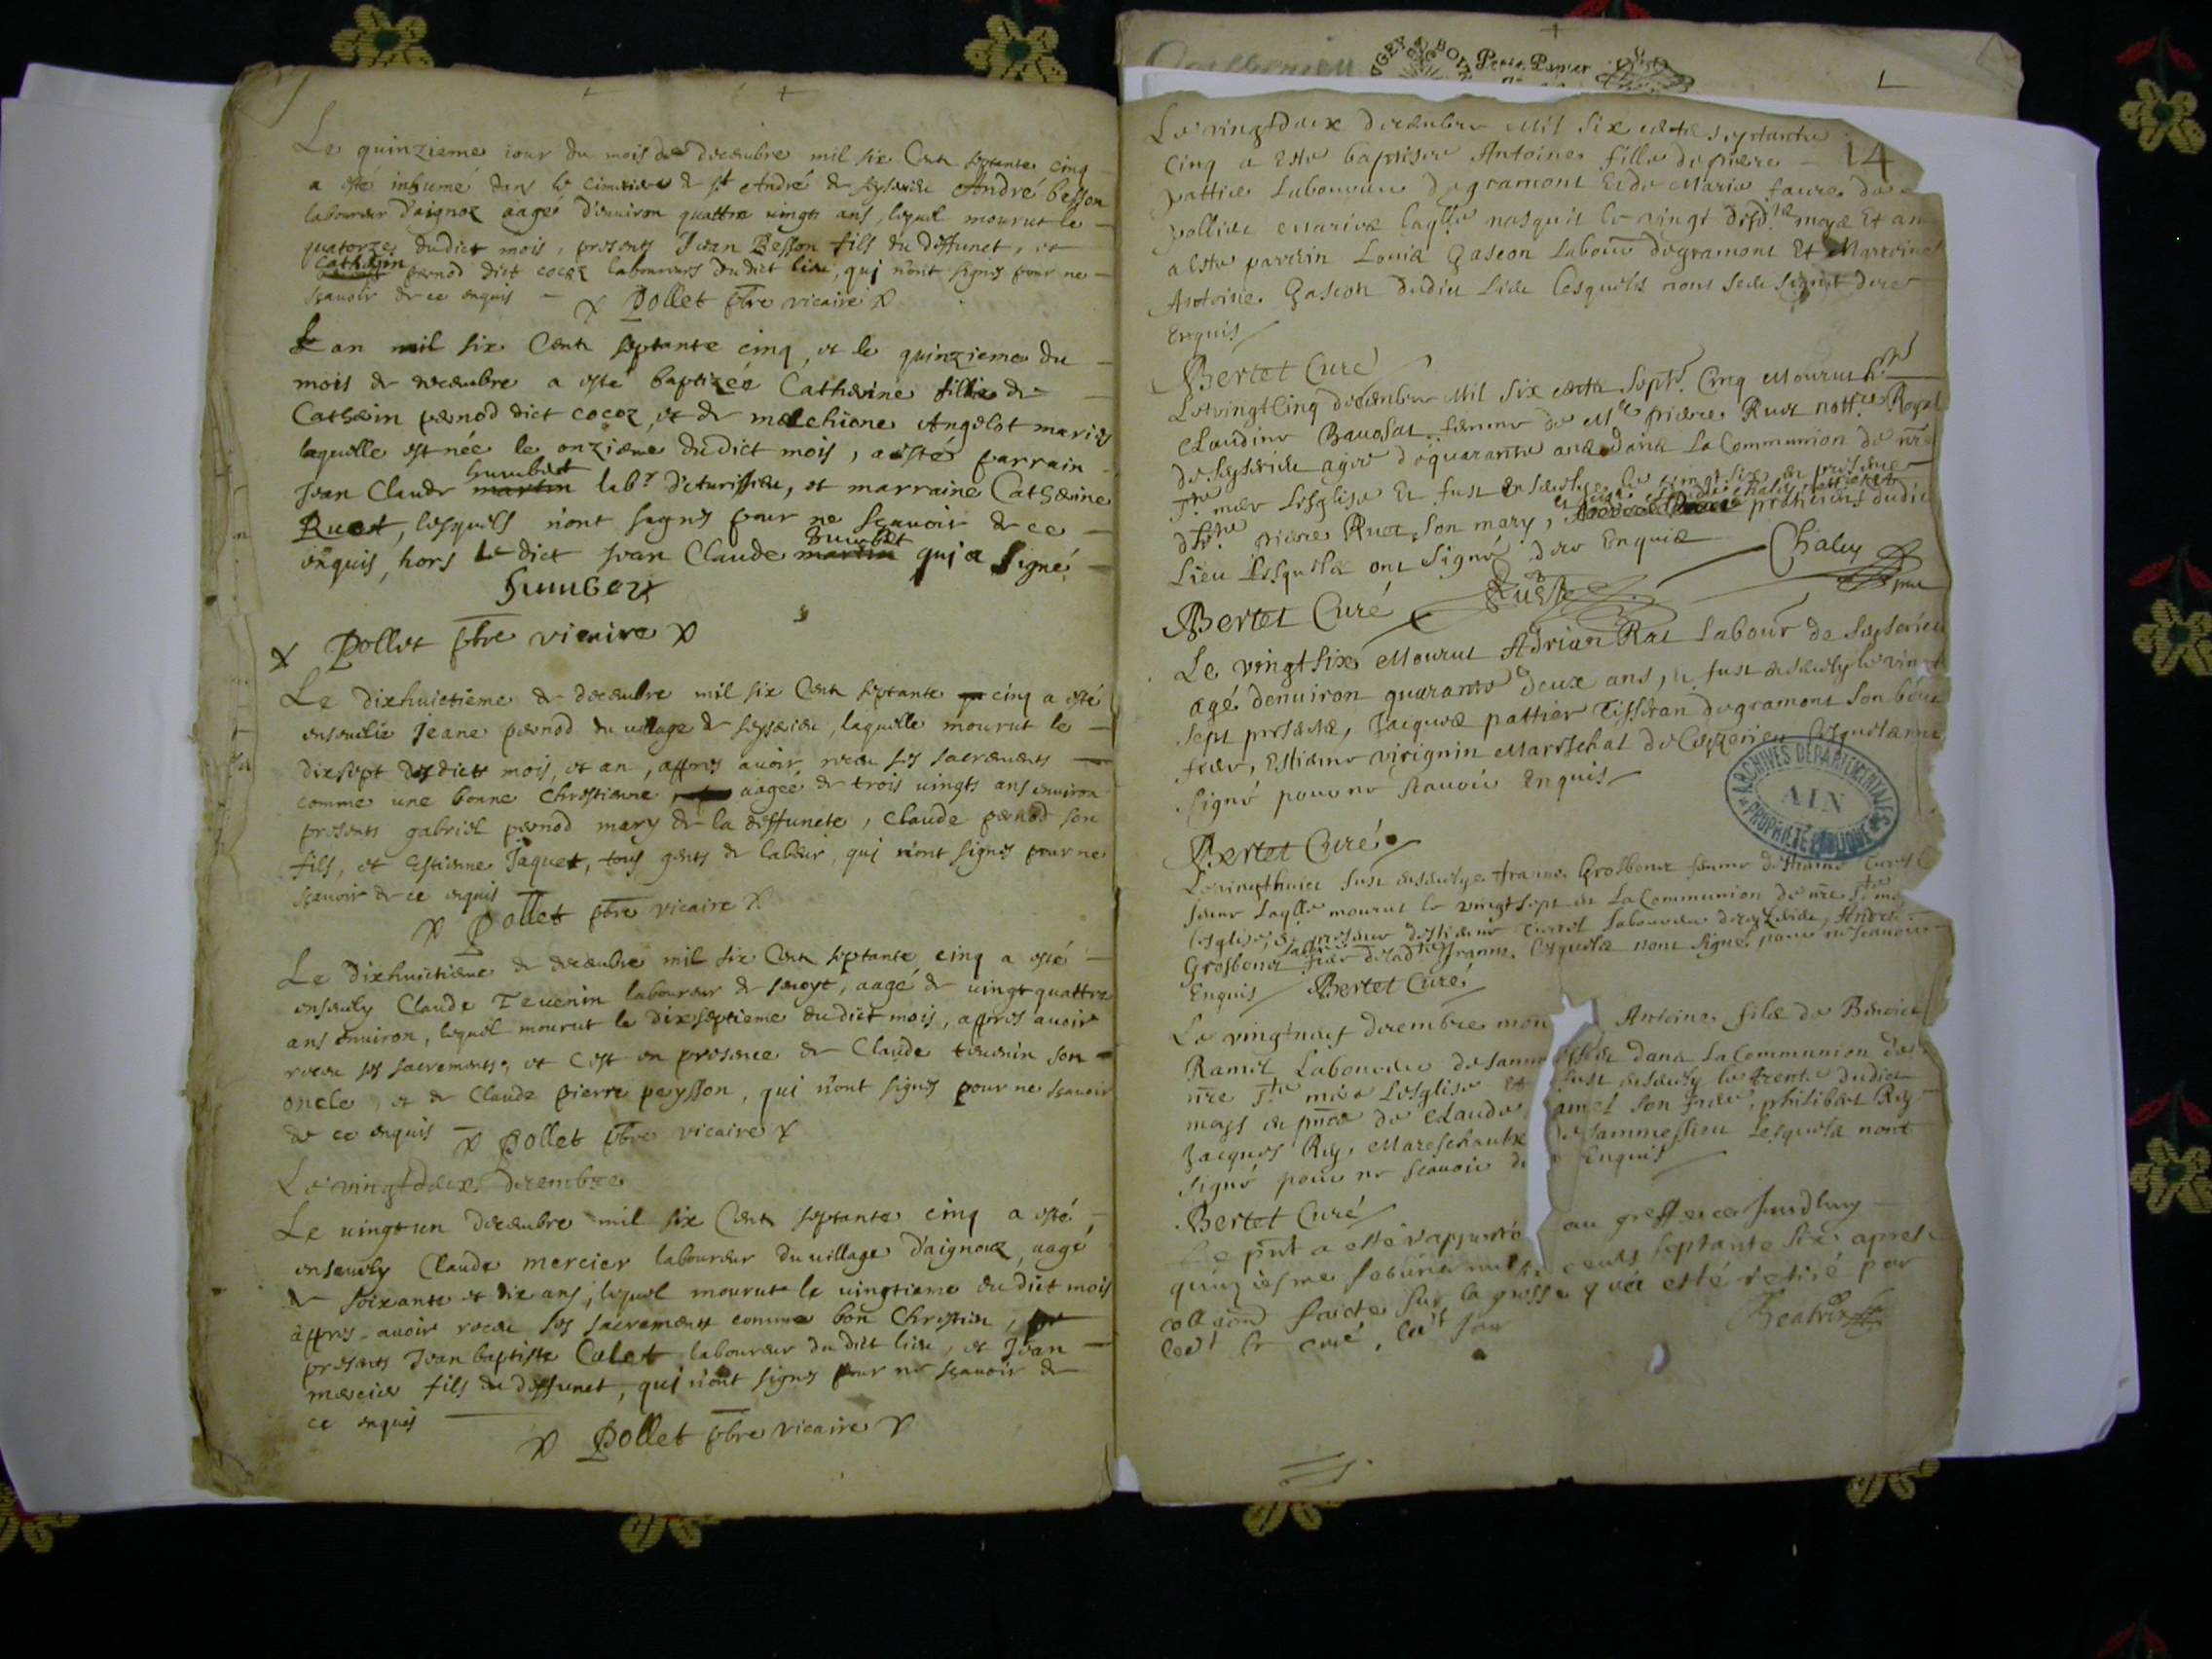 Le quinzieme iour du mois de decembre mil six Cent septante cinq
a esté inhumé dans le cimetiere de st André de seyserieu André besson
laboureur d'aignoz aagé d'enuiron quattre uingts ans, lequel mourut le
quatorze dudict mois, presents Jean Besson fils du deffunct, et
Catherin pernod dict cocoz laboureurs dudict lieu, qui n'ont signes pour ne
sçauoir de ce enquis
Pollet pbre vicaire
L an mil six Cent septante cinq, et le quinzieme du
mois de decembre a esté baptizée Catherine fillie de
Catherin pernod dict cocoz, et de melchione Angelot mariés
laquelle est née le onzieme dudict mois, a esté parrain
humbert
Jean Claude martin labr d'eturissieu, et marraine Catherine
Ruet, lesquels n'ont signes pour ne sçauoir de ce
humbert
enquis, hors Le dict Jean Claude martin qui a signé
humbert
Pollet pbre vicaire
Le dixhuictieme de decembre mil six Cent septante cinq a esté
enseuelie Jeane pernod du uillage de seysserieu, laquelle mourut le
dixsept desdict mois, et an, appres auoir receu ses sacrements
comme une bonne Chrestienne, aagée de trois uingts ans enuiron
presents gabriel pernod mary de la deffuncte, Claude pernod son
fils, et Estienne Jaquet, tous gents de labeur, qui n'ont signes pour ne
sçauoir de ce enquis
Pollet pbre vicaire
Le Dixhuictieme de decembre mil six Cent septante cinq a esté
enseuely Claude Teuenin laboureur de aagé de uingt quattre
ans enuiron, lequel mourut le dixseptieme dudict mois, appres auoir
receu ses sacrements, et c'est en presence de Claude teuenin son
oncle, et de Claude pierre peysson, qui n'ont signes pour ne sçauoir
de ce enquis Pollet pbre vicaire
Le vingtdeux decembre
Le uingt un decembre mil six Cent septante cinq a esté
enseuely Claude mercier laboureur du uillage d'aignoz, aagé
de soixante et dix ans, lequel mourut le uingtieme dudict mois
appres auoir receu ses sacrements comme bon Chrestien,
presents Jean baptiste Colet laboureur dudict lieu, et Jean
mercier fils du deffunct, qui n'ont signes pour ne sçauoir de
ce enquis
Pollet pbre vicaire
BUGEY BOVR
Petit Papier
14
Le vingtdeux decembre Mil six cents septante
cinq a este baptisee Antoine fille de pierre
pattier Laboureur degramont Et de Marie faure de
pollieu Mariez nasquit le vingt mois Et an
a este parrein Louis Gascon Labour degramont Et Marreine
Antoine Gascon dudit Lieu lesquels nont signé dece
Enquis
Bertet Curé
Levingtcinq decembre Mil six cents sept.te Cinq Mourut
Claudine femme de Mre pierre Ruet nott.re Royal
de seyserieu agee de quarante ans dans La Communion de nre
Ste mere Lesglise Et fust enseuelye le vingtsix en presence
pierre Ruet son mary, praticiens dudit
Lieu Lesquels ont Signé de ce Enquis
Chaley
Bertet Curé
Ruet
Le vingt six Mourut Adrian Rat Labour de seyserieu
agé denuiron quarante deux ans, et fust enseuely le vingt
sept presents, Jacques pattier Tisseran degramont son beau
frere, Estienne virignin Mareschal de Ceyzerieu Lesquels nont
Signé pour ne scauoir Enquis
ARCHIVES DEPARTEMENTALES
AIN
PROPRIETE PUBLIQUE
Bertet Curé
Levingthuict fust enseuelye Grosbonet femme
mourut le vingtsept en La Communion de nre Ste
Lesglise, Laboureur André
Grosbonet frere Lesquels nont signé pour ne scauoir
Enquis Bertet Curé
Le vingtneuf decembre mou Antoine fils de Benoict
Ramel Laboureur dans La Communion de
nre Ste mere Lesglise Et fust enseuely le trente dudict
moys en pnce de Claude amel son frere, philibert Rey
Jacques Rey, Mareschaulx de sammessieu Lesquels nont
Signé pour ne scauoir de Enquis
Bertet Curé
Le pnt a esté rapporté au greffe ce Jeudy
quinziesme feburier mil six cents septante six apres
faicte sur la grosse qui a esté retiré par
led. sr curé,